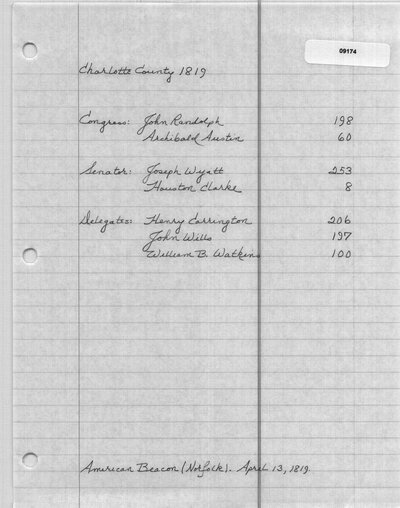 09174
Charlotte County 1819
Congress: John Randolph 198
Archibald Austin 60
Senator: Joseph Wyatt 253
Houston Clarke 8
Delegates: Henry Carrington 206
John Wills 197
William B. Watkins 100
American Beacon (Norfolk). April 13, 1819.